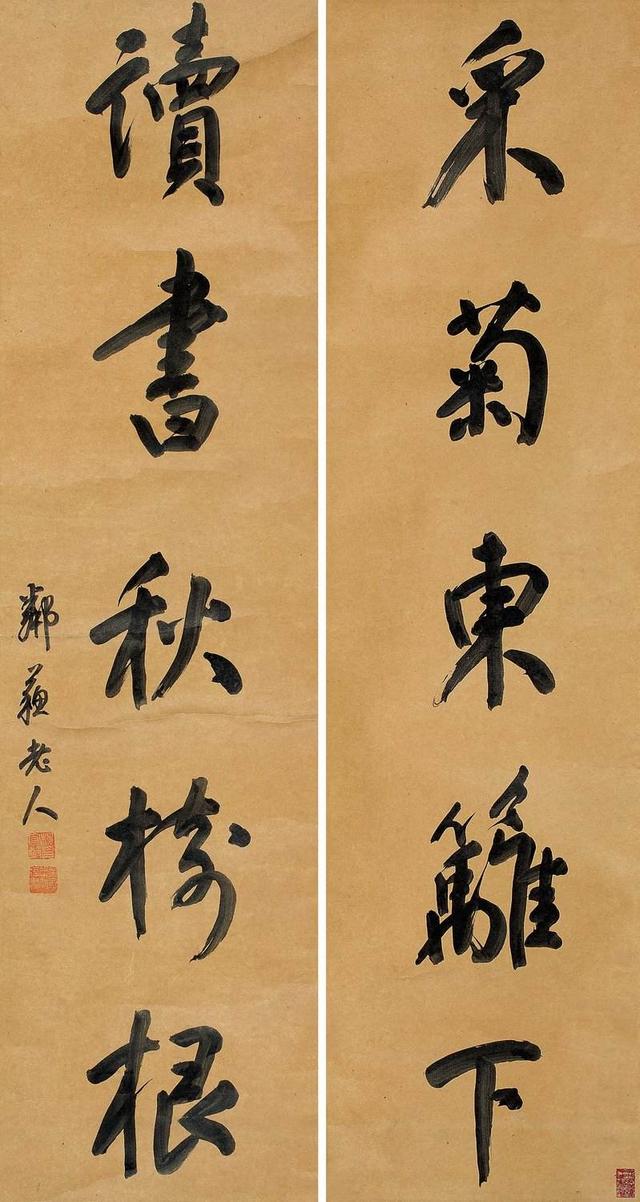 采菊東籬下
讀書秋樹根
鄰蘇老人